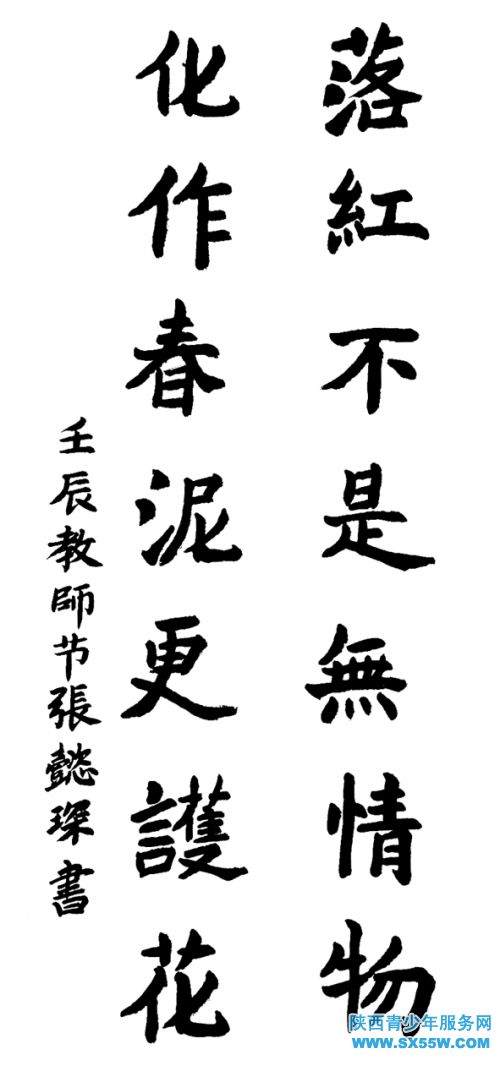 落紅不是無情物
化作春泥更護花
壬辰教師节張懿琛書
陕西青少年服务网
www.sx55w.com